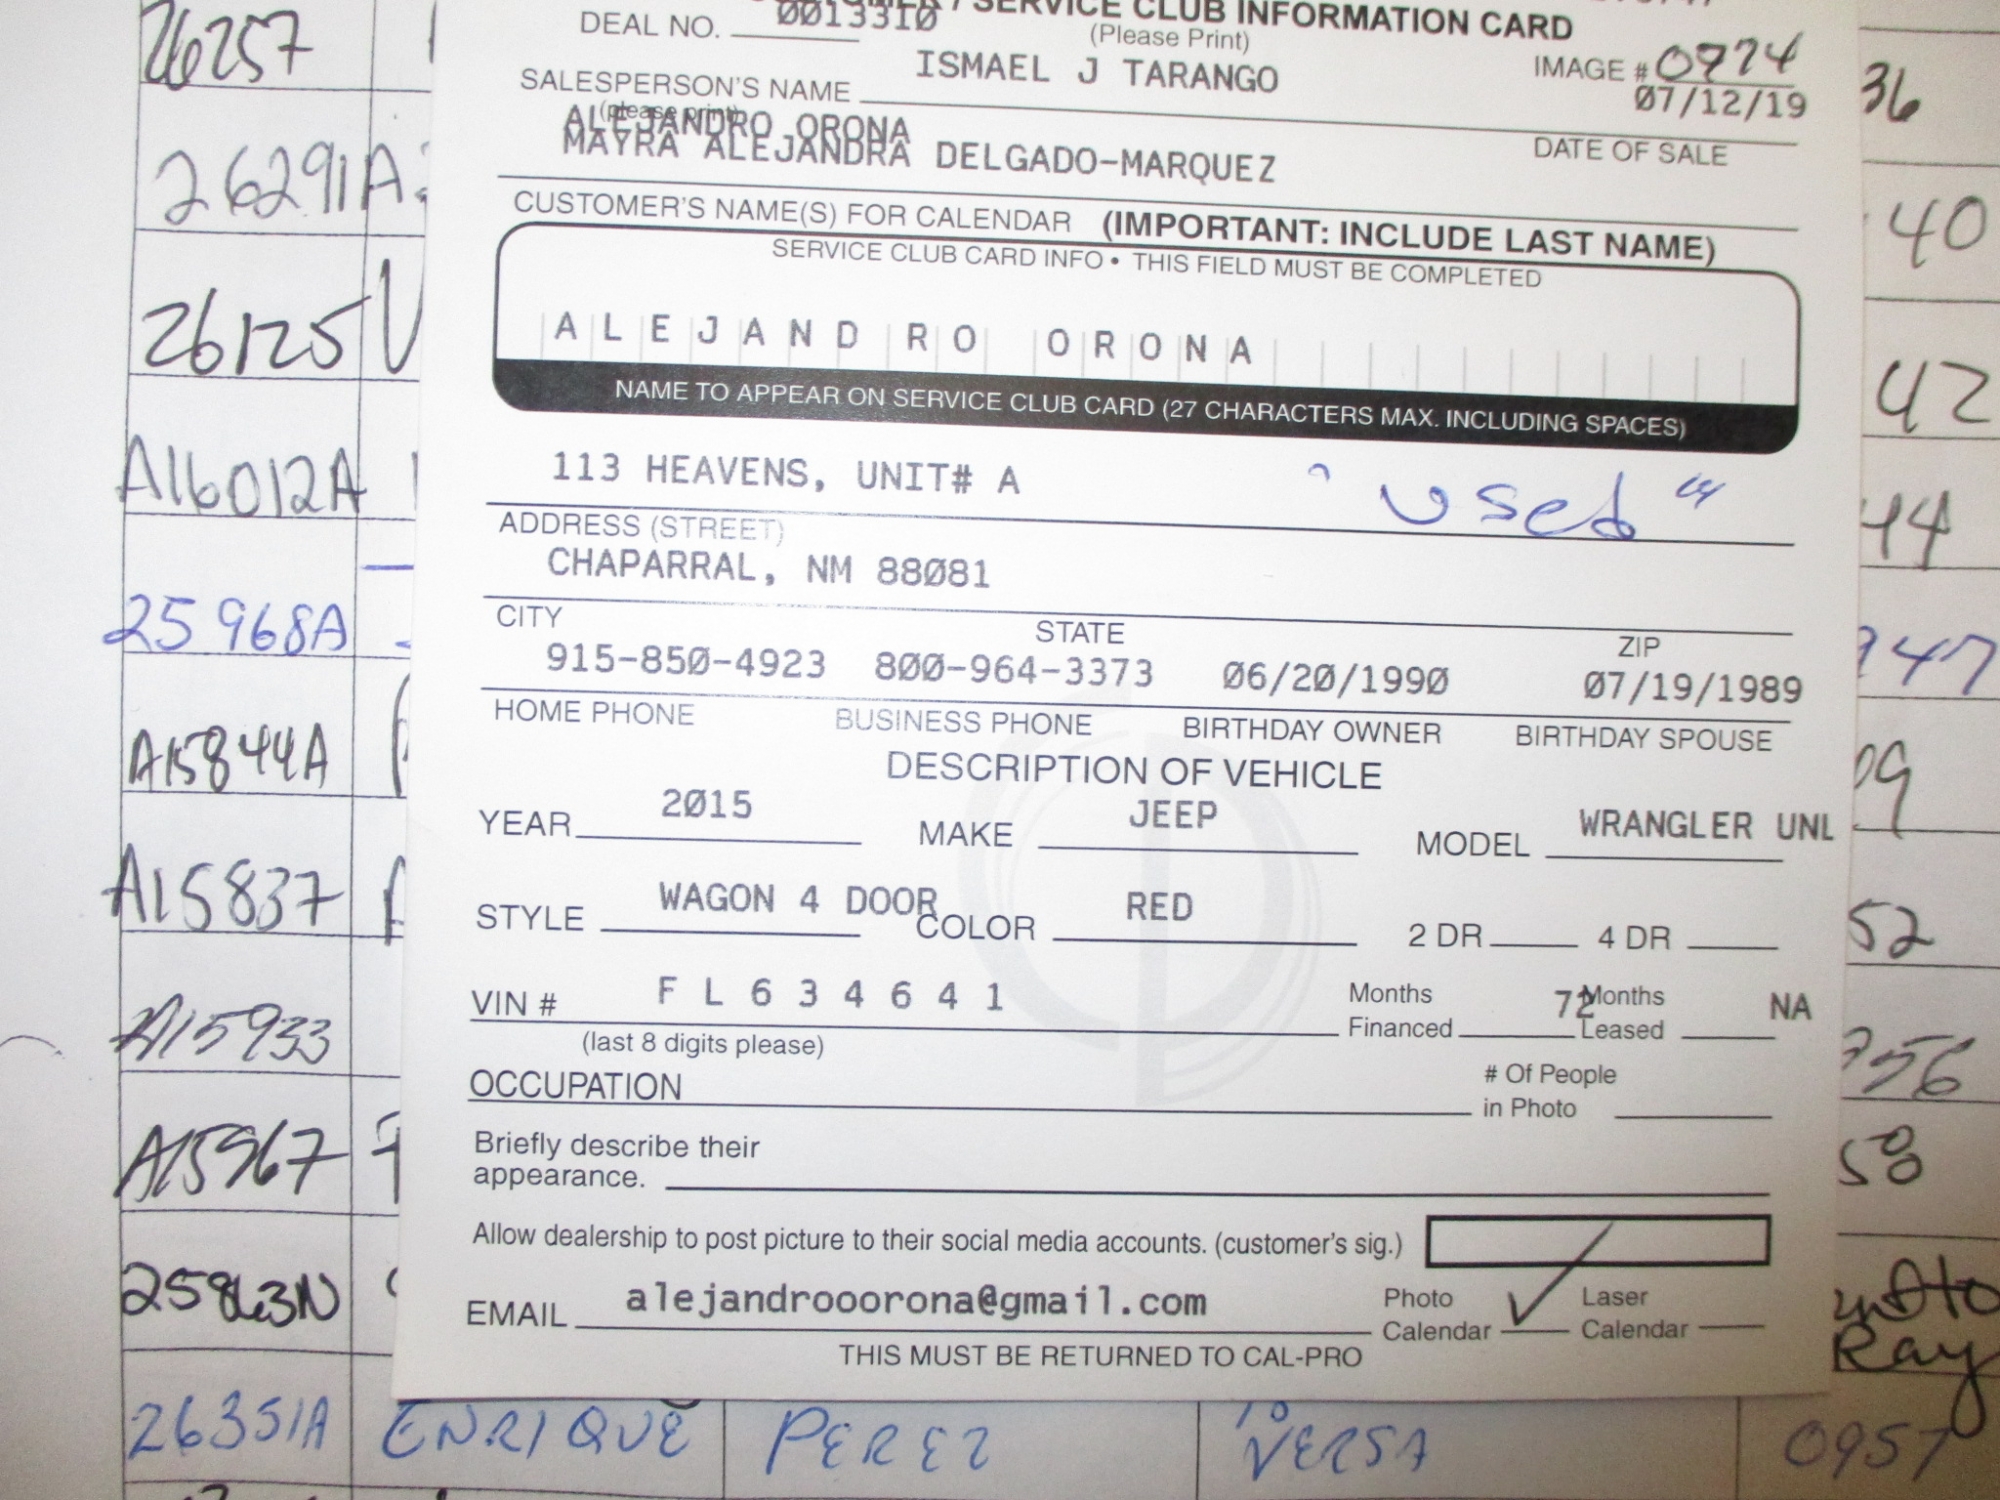 / SERVICE CLUB INFORMATION CARD
DEAL NO. 0013310 (Please Print)
IMAGE # 0974
SALESPERSON'S NAME ISMAEL J TARANGO
(please print)
07/12/19
DATE OF SALE
ALEJANDRO ORONA
MAYRA ALEJANDRA DELGADO-MARQUEZ
CUSTOMER'S NAME(S) FOR CALENDAR (IMPORTANT: INCLUDE LAST NAME)
SERVICE CLUB CARD INFO • THIS FIELD MUST BE COMPLETED
ALEJANDRO ORONA
NAME TO APPEAR ON SERVICE CLUB CARD (27 CHARACTERS MAX. INCLUDING SPACES)
113 HEAVENS, UNIT# A "used"
ADDRESS (STREET)
CHAPARRAL, NM 88081
CITY STATE ZIP
915-850-4923 800-964-3373 06/20/1990 07/19/1989
HOME PHONE BUSINESS PHONE BIRTHDAY OWNER BIRTHDAY SPOUSE
DESCRIPTION OF VEHICLE
YEAR 2015 MAKE JEEP MODEL WRANGLER UNL
STYLE WAGON 4 DOOR COLOR RED 2 DR 4 DR
VIN # F L 6 3 4 6 4 1 Months Financed 72 Months Leased NA
(last 8 digits please)
OCCUPATION # Of People in Photo
Briefly describe their
appearance.
Allow dealership to post picture to their social media accounts. (customer's sig.)
EMAIL alejandrooorona@gmail.com Photo Calendar ✓ Laser Calendar
THIS MUST BE RETURNED TO CAL-PRO
26257
26291A
26125
A16012A
25968A
A15844A
A15837
A15933
A15967
25863N
26351A ENRIQUE PEREZ VERSA 0957
36
40
42
44
947
09
52
956
58
Ray